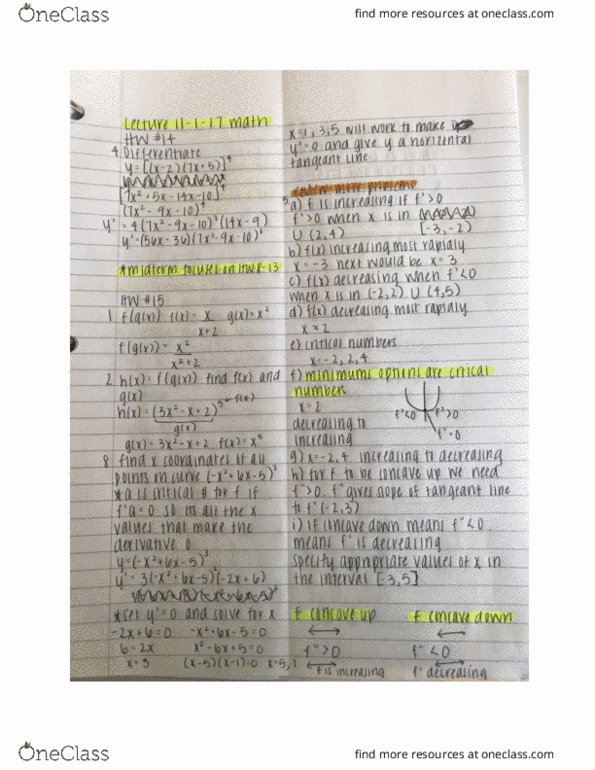 OneClass
find more resources at oneclass.com
Lecture 11-1-17 math
HW #14
4. Differentiate
y=[(x-2)(7x+5)]⁴
[7x²+5x-14x-10]⁴
(7x²-9x-10)⁴
y'=4(7x²-9x-10)³(14x-9)
y'=(56x-36)(7x²-9x-10)³
*midterm focuses on HW 8-13
HW #15
1. f(g(x)) f(x)= x/(x+2) g(x)=x²
f(g(x))= x²/(x²+2)
2. h(x)=f(g(x)) find f(x) and
g(x)
h(x)=(3x²-x+2)⁵ ← f(x)
g(x)
g(x)=3x²-x+2 f(x)=x⁵
8. find x coordinates if all
points on curve (-x²+6x-5)³
*a is critical # for f if
f'a=0 so its all the x
values that make the
derivative 0
y=(-x²+6x-5)³
y'=3(-x²+6x-5)²(-2x+6)
*set y'=0 and solve for x
-2x+6=0 -x²+6x-5=0
6=2x x²-6x+5=0
x=3 (x-5)(x-1)=0 x=5,1
x=1,3,5 will work to make
y'=0 and give y a horizontal
tangeant line
review more problems
5a) f is increasing if f'>0
f'>0 when x is in
∪ (2,4) [-3,-2)
b) f(x) increasing most rapidly
x=-3 next would be x=3
c) f(x) decreasing when f'<0
when x is in (-2,2) ∪ (4,5)
d) f(x) decreasing most rapidly
e) critical numbers
x=-2,2,4
f) minimums options are critical
numbers
x=2
f'<0 f'>0
decreasing to
f'=0
increasing
g) x=-2,4 increasing to decreasing
h) for f to be concave up we need
f">0. f" gives slope of tangeant line
to f' (-2,3)
i) if concave down means f"<0
means f' is decreasing
specify appropriate values of x in
the interval [-3,5]
f concave up f concave down
f">0 f"<0
f' is increasing f' decreasing
OneClass
find more resources at oneclass.com